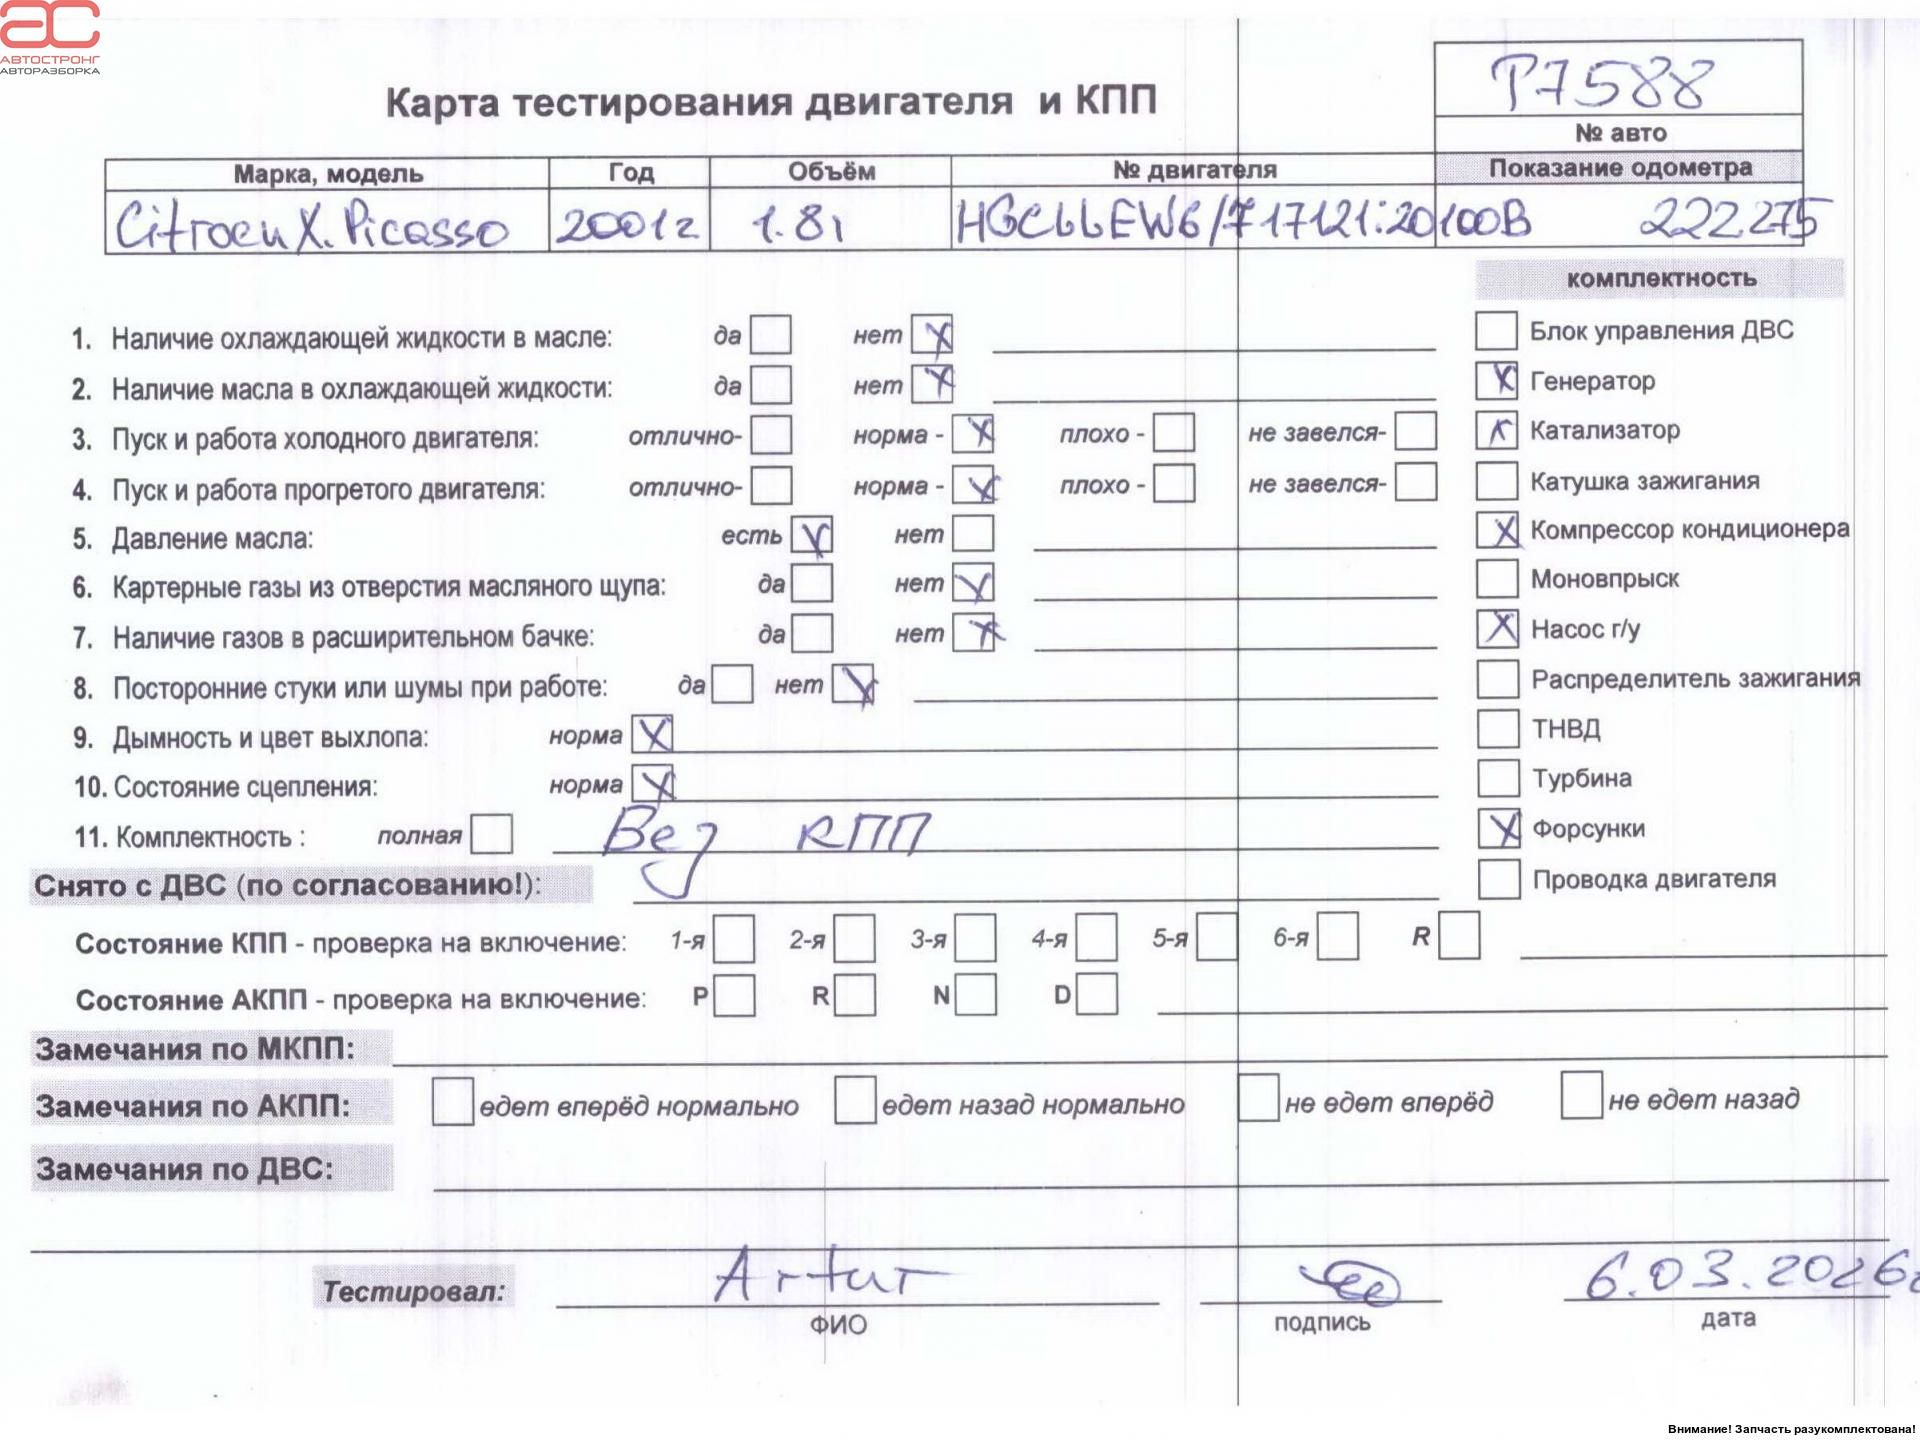 АВТОСТРОНГ
АВТОРАЗБОРКА
P7588
№ авто
Карта тестирования двигателя и КПП
Марка, модель Год Объём № двигателя Показание одометра
Citroen X. Picasso 2001г 1.8i 222.275
комплектность
1. Наличие охлаждающей жидкости в масле: да нет X Блок управления ДВС
2. Наличие масла в охлаждающей жидкости: да нет X X Генератор
3. Пуск и работа холодного двигателя: отлично- норма - X плохо - не завелся- X Катализатор
4. Пуск и работа прогретого двигателя: отлично- норма - X плохо - не завелся- Катушка зажигания
5. Давление масла: есть X нет X Компрессор кондиционера
6. Картерные газы из отверстия масляного щупа: да нет X Моновпрыск
7. Наличие газов в расширительном бачке: да нет X X Насос г/у
8. Посторонние стуки или шумы при работе: да нет X Распределитель зажигания
9. Дымность и цвет выхлопа: норма X ТНВД
10. Состояние сцепления: норма X Турбина
11. Комплектность : полная Без КПП X Форсунки
Снято с ДВС (по согласованию!): Проводка двигателя
Состояние КПП - проверка на включение: 1-я 2-я 3-я 4-я 5-я 6-я R
Состояние АКПП - проверка на включение: P R N D
Замечания по МКПП:
Замечания по АКПП: едет вперёд нормально едет назад нормально не едет вперёд не едет назад
Замечания по ДВС:
Тестировал: Artur 6.03.2026г
ФИО подпись дата
Внимание! Запчасть разукомплектована!